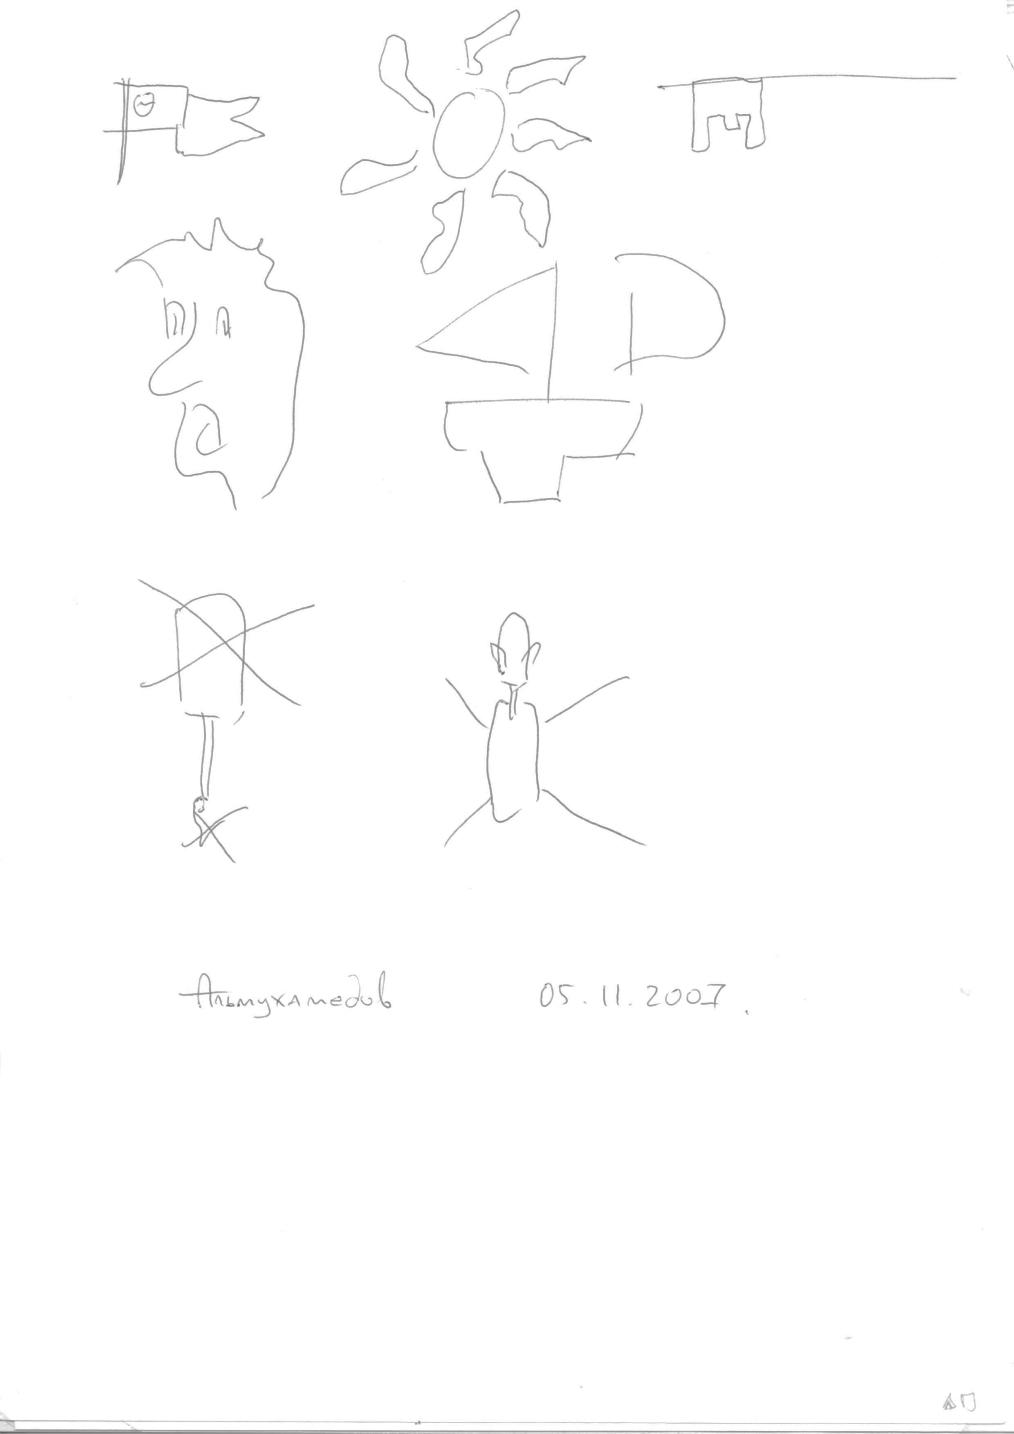 Альмухамедов 05.11.2007.